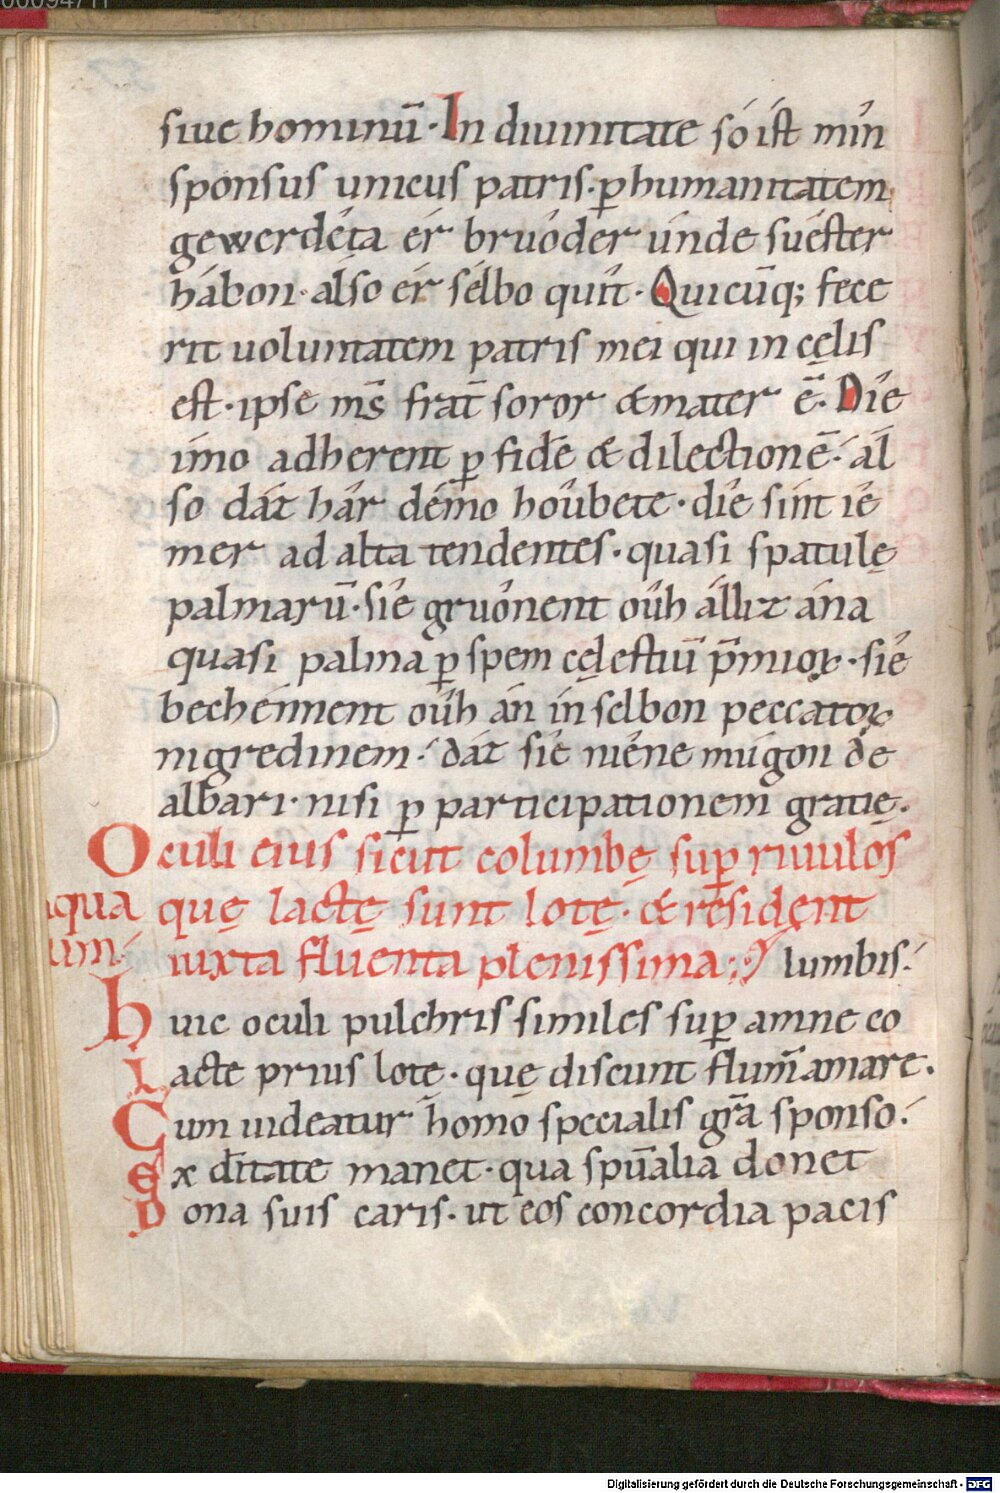 00094711
siue hominū · In diuinitate só íſt mín
sponsus unicus patris · ꝑ humanitatem
gewerdéta ér bruóder únde suéster
hábon · álso ér sélbo quít · Quicūq; fece
rit uoluntatem patris mei qui in cęlis
est · ipse ms̄ frat̄ soror & mater ē · Díe
ímo adherent ꝑ fidē & dilectionē · ál
so dáz hár démo hoúbete · díe sínt íe
mer ad alta tendentes · quasi spatulę
palmarū · síe gruónent oúh állíz ána
quasi palma ꝑ spem cęlestiū p̄mioꝝ · síe
bechénnent oúh án ín selbon peccatoꝝ
nigredinem · dáz síe níene múgon de
albari · nisi ꝑ participationem gratię ·
Oculi eius sicut columbę suꝑ riuulos
aqua
quę lactę sunt lotę · & resident
rum ·
iuxta fluenta plenissima :·
lumbis ·
Huic oculi pulchris similes suꝑ amne co
Lacte prius lotę · quę discunt flum̄ amare .
Cum uideatur homo specialis gr̄a sponso ·
Ex d̄itate manet · qua spūalia donet
Dona suis caris · ut eos concordia pacis
Digitalisierung gefördert durch die Deutsche Forschungsgemeinschaft - DFG